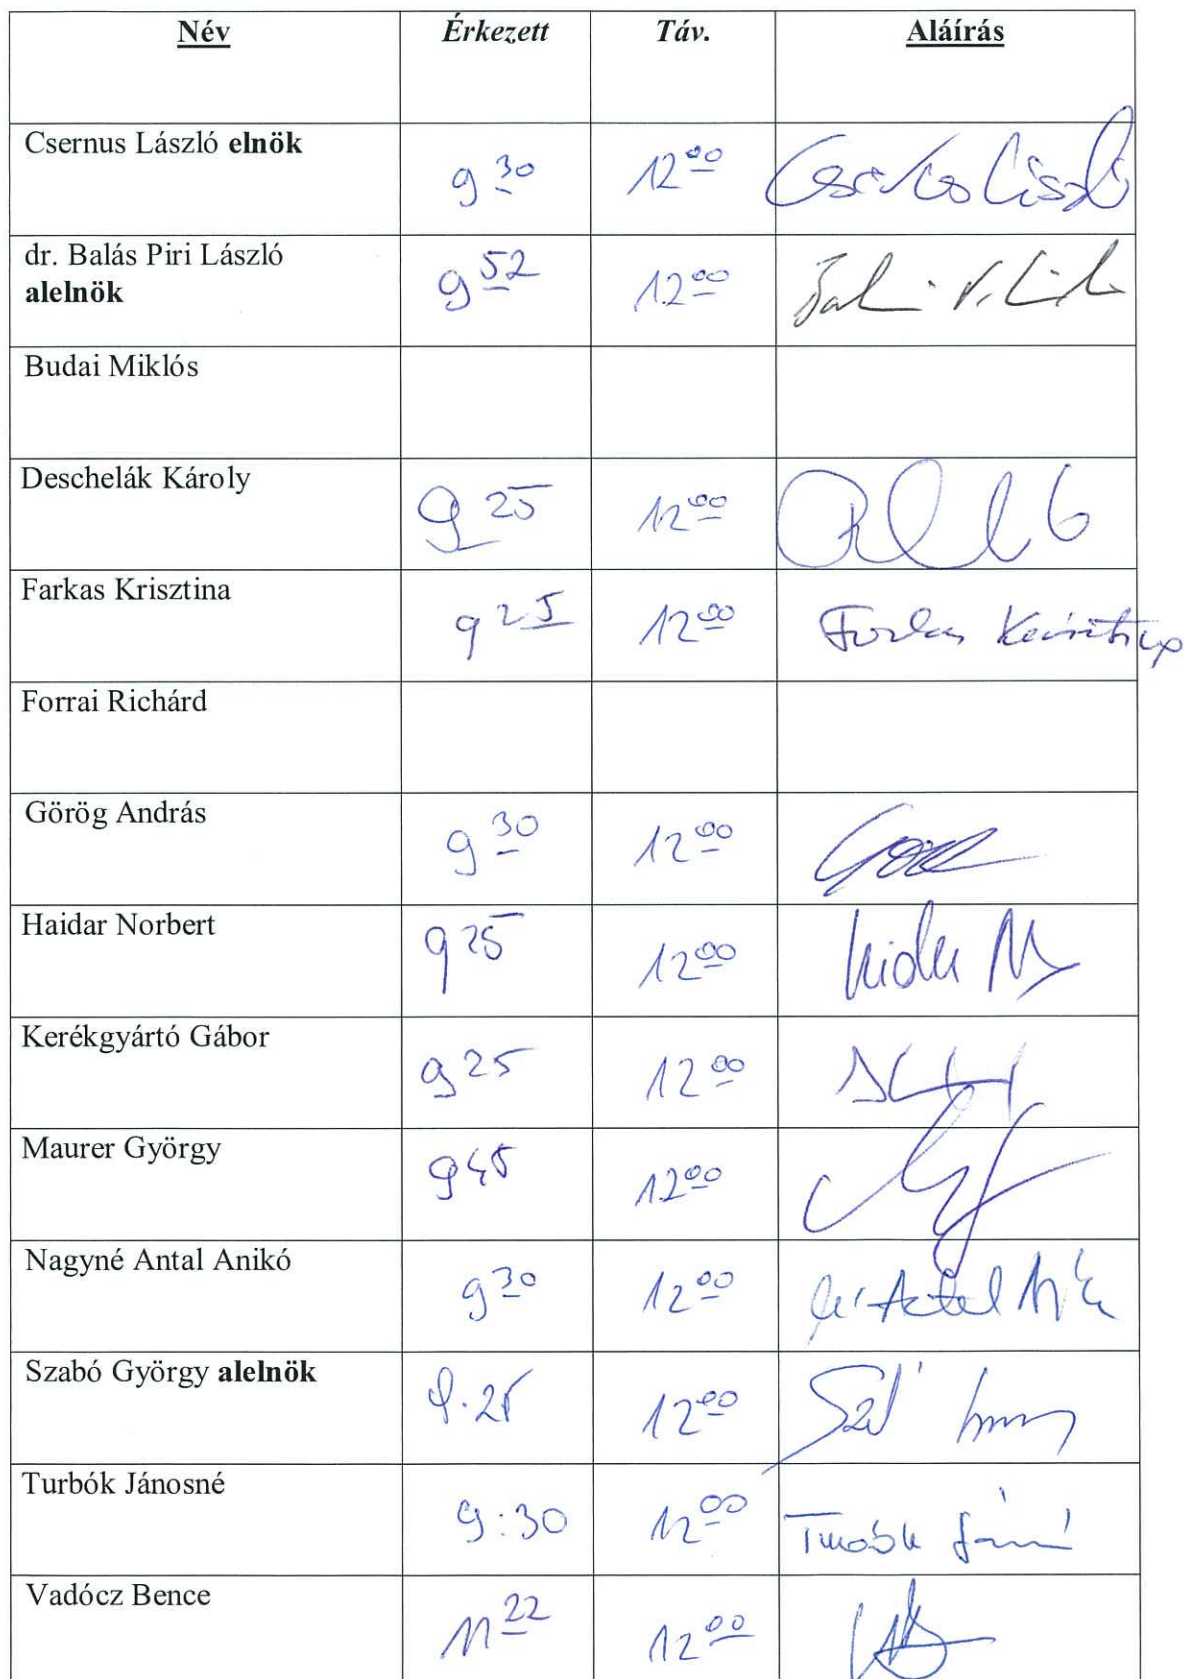 Név Érkezett Táv. Aláírás
Csernus László elnök 9 30 12 00
dr. Balás Piri László
alelnök 9 52 12 00
Budai Miklós
Deschelák Károly 9 25 12 00
Farkas Krisztina 9 25 12 00 Farkas Krisztina
Forrai Richárd
Görög András 9 30 12 00
Haidar Norbert 9 25 12 00
Kerékgyártó Gábor 9 25 12 00
Maurer György 9 45 12 00
Nagyné Antal Anikó 9 30 12 00
Szabó György alelnök 9.25 12 00
Turbók Jánosné 9:30 12 00
Vadócz Bence 11 22 12 00